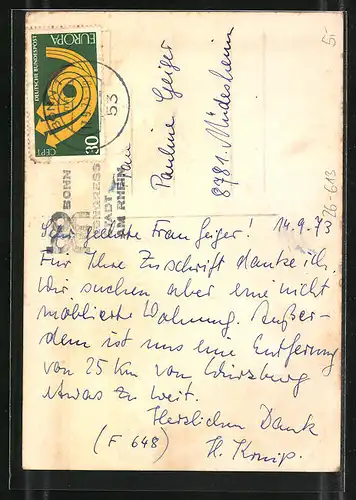 EUROPA
DEUTSCHE BUNDESPOST
30
CEPT
53
BONN
KONGRESS
STADT
AM RHEIN
Frau
Pauline Geiger
8781 Mädesheim
5.-
26-613
Sehr geehrte Frau Geiger! 14.9.73
Für Ihre Zuschrift danke ich.
Wir suchen aber eine nicht
möblierte Wohnung. Außer-
dem ist uns eine Entfernung
von 25 Km von Würzburg
etwas zu weit.
Herzlichen Dank
(F 648) H.